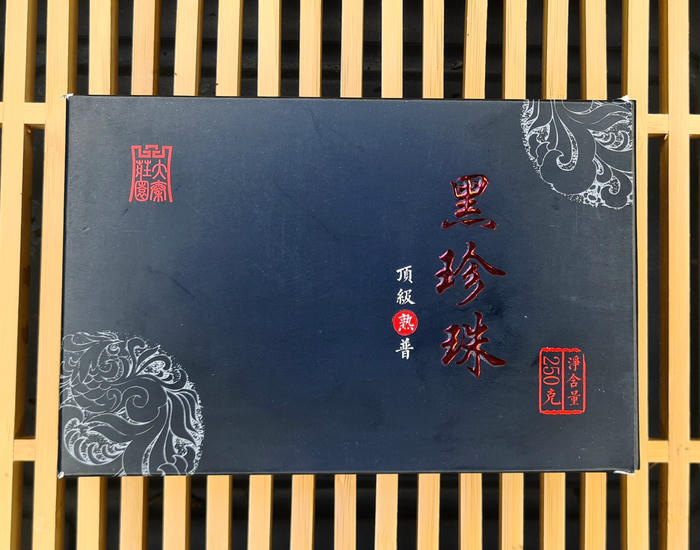 黑珍珠
頂級熟普
淨含量
250克
大寨
莊園